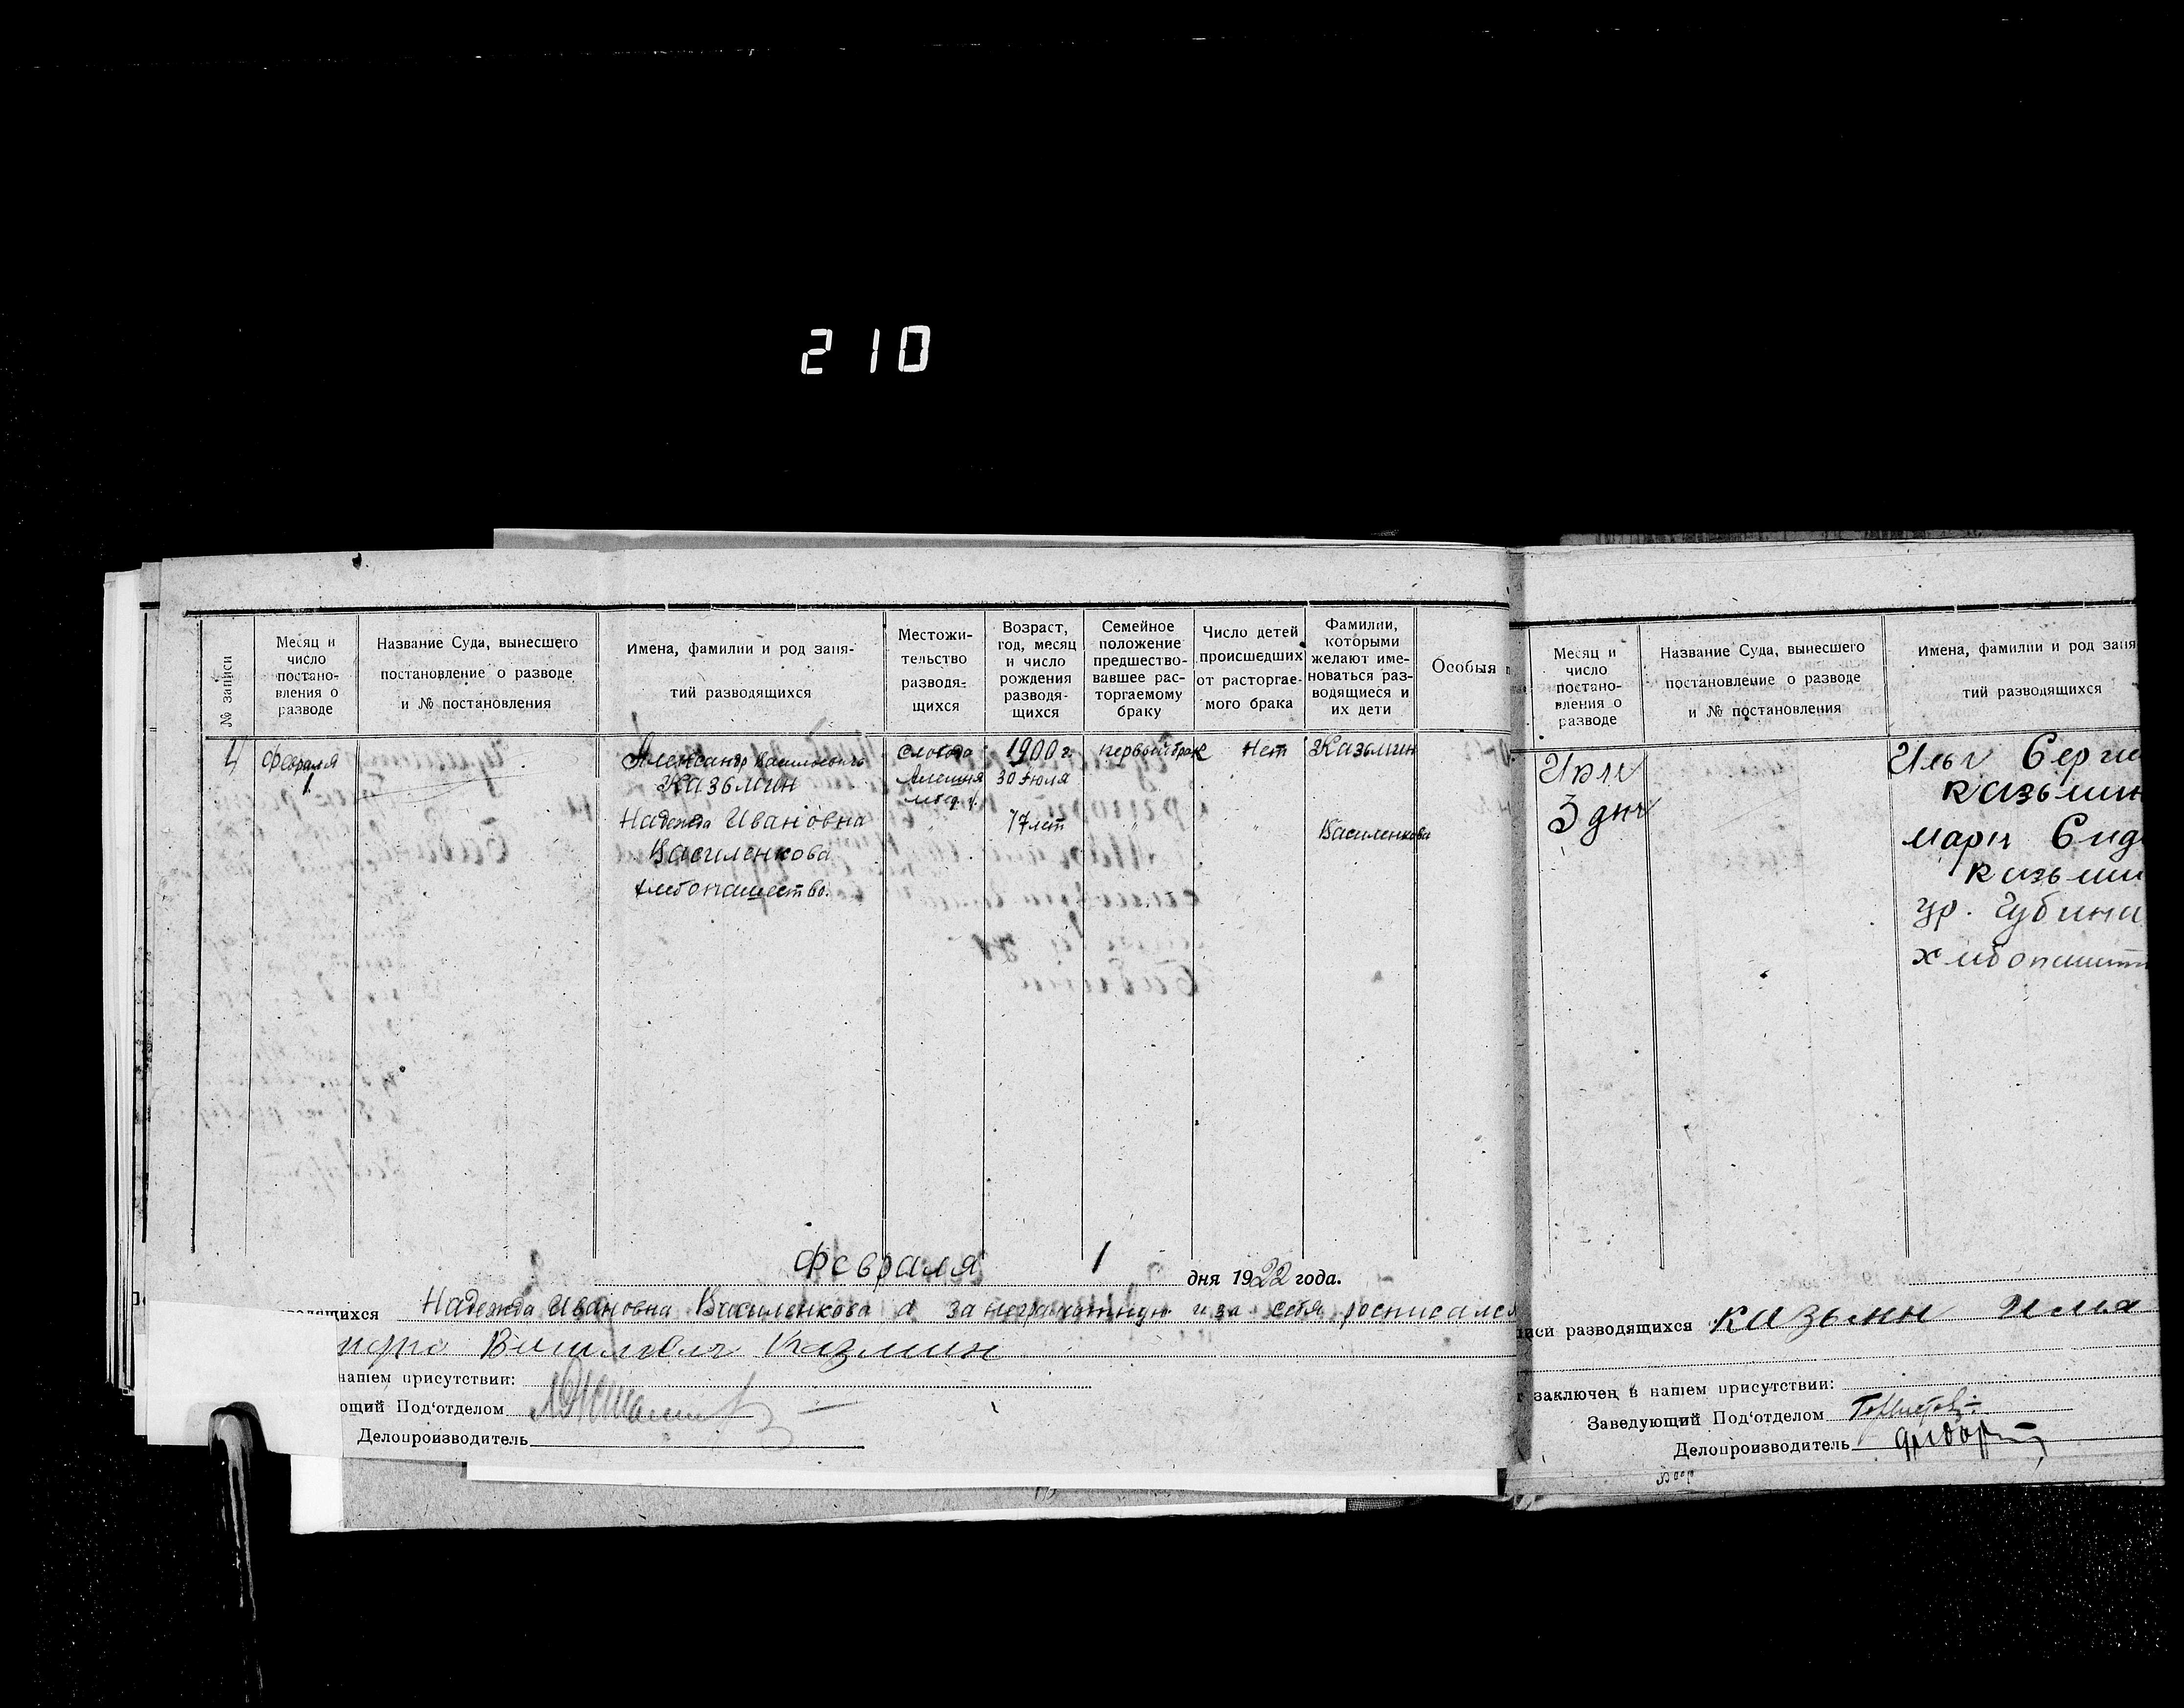 210
№ записи
Месяц и
число
постано-
вления о
разводе
Название Суда, вынесшего
постановление о разводе
и № постановления
Имена, фамилии и род заня-
тий разводящихся
Местожи-
тельство
разводя-
щихся
Возраст,
год, месяц
и число
рождения
разводя-
щихся
Семейное
положение
предшество-
вавшее рас-
торгаемому
браку
Число детей
происшедших
от расторгае-
мого брака
Фамилии,
которыми
желают име-
новаться раз-
водящиеся и
их дети
Особыя
4
февраля
1
Александр Васильевич
Казьмин
Надежда Ивановна
Василенкова
хлебопашество.
слобода
Алешня
1900 г.
30 июля
17 лет
первый брак
Нет
Казьмин
Василенкова
февраля 1 дня 1922 года.
Надежда Ивановна Василенкова а за неграмотную и за себя росписался
Казмин
нашем присутствии:
ющий Под'отделом
Делопроизводитель
Месяц и
число
постано-
вления о
разводе
Название Суда, вынесшего
постановление о разводе
и № постановления
Имена, фамилии и род заня
тий разводящихся
3 дня
Серге
Казьмин
Казьми
ур. Губини
хлебопашт
иси разводящихся Казьмн Илиа
заключен в нашем присутствии:
Заведующий Под'отделом
Делопроизводитель